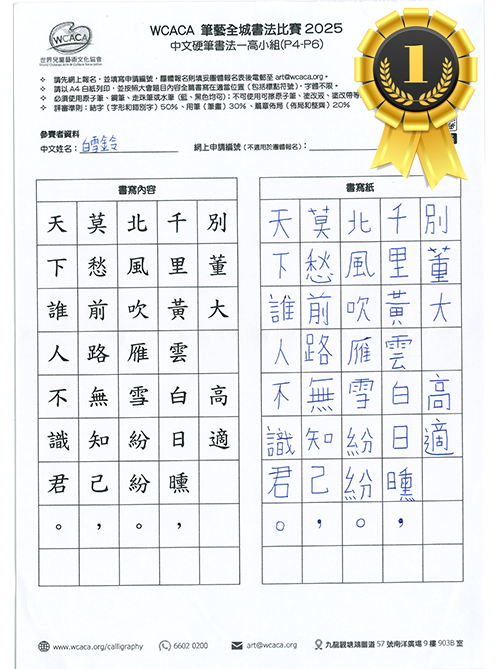 WCACA
世界兒童藝術文化協會
WCACA 筆藝全城書法比賽 2025
中文硬筆書法—高小組(P4-P6)
1
請先網上報名，並填寫申請編號，團體報名則填妥團體報名表後電郵至 art@wcaca.org。
請以 A4 白紙列印，並按照大會題目內容全篇書寫在適當位置（包括標點符號），字體不限。
必須使用原子筆、鋼筆、走珠筆或水筆（藍、黑色均可）；不可使用可擦原子筆、塗改液、塗改帶等
評審準則：結字（字形和錯別字）50%、用筆（筆畫）30%、篇章佈局（佈局和整齊）20%
參賽者資料
中文姓名：白雪鈴
網上申請編號（不適用於團體報名）：
書寫內容
別董大 高適
千里黃雲白日曛，
北風吹雁雪紛紛。
莫愁前路無知己，
天下誰人不識君。
書寫紙
別董大 高適
千里黃雲白日曛，
北風吹雁雪紛紛。
莫愁前路無知己，
天下誰人不識君。
www.wcaca.org/calligraphy
6602 0200
art@wcaca.org
九龍觀塘鴻圖道 57 號南洋廣場 9 樓 903B 室